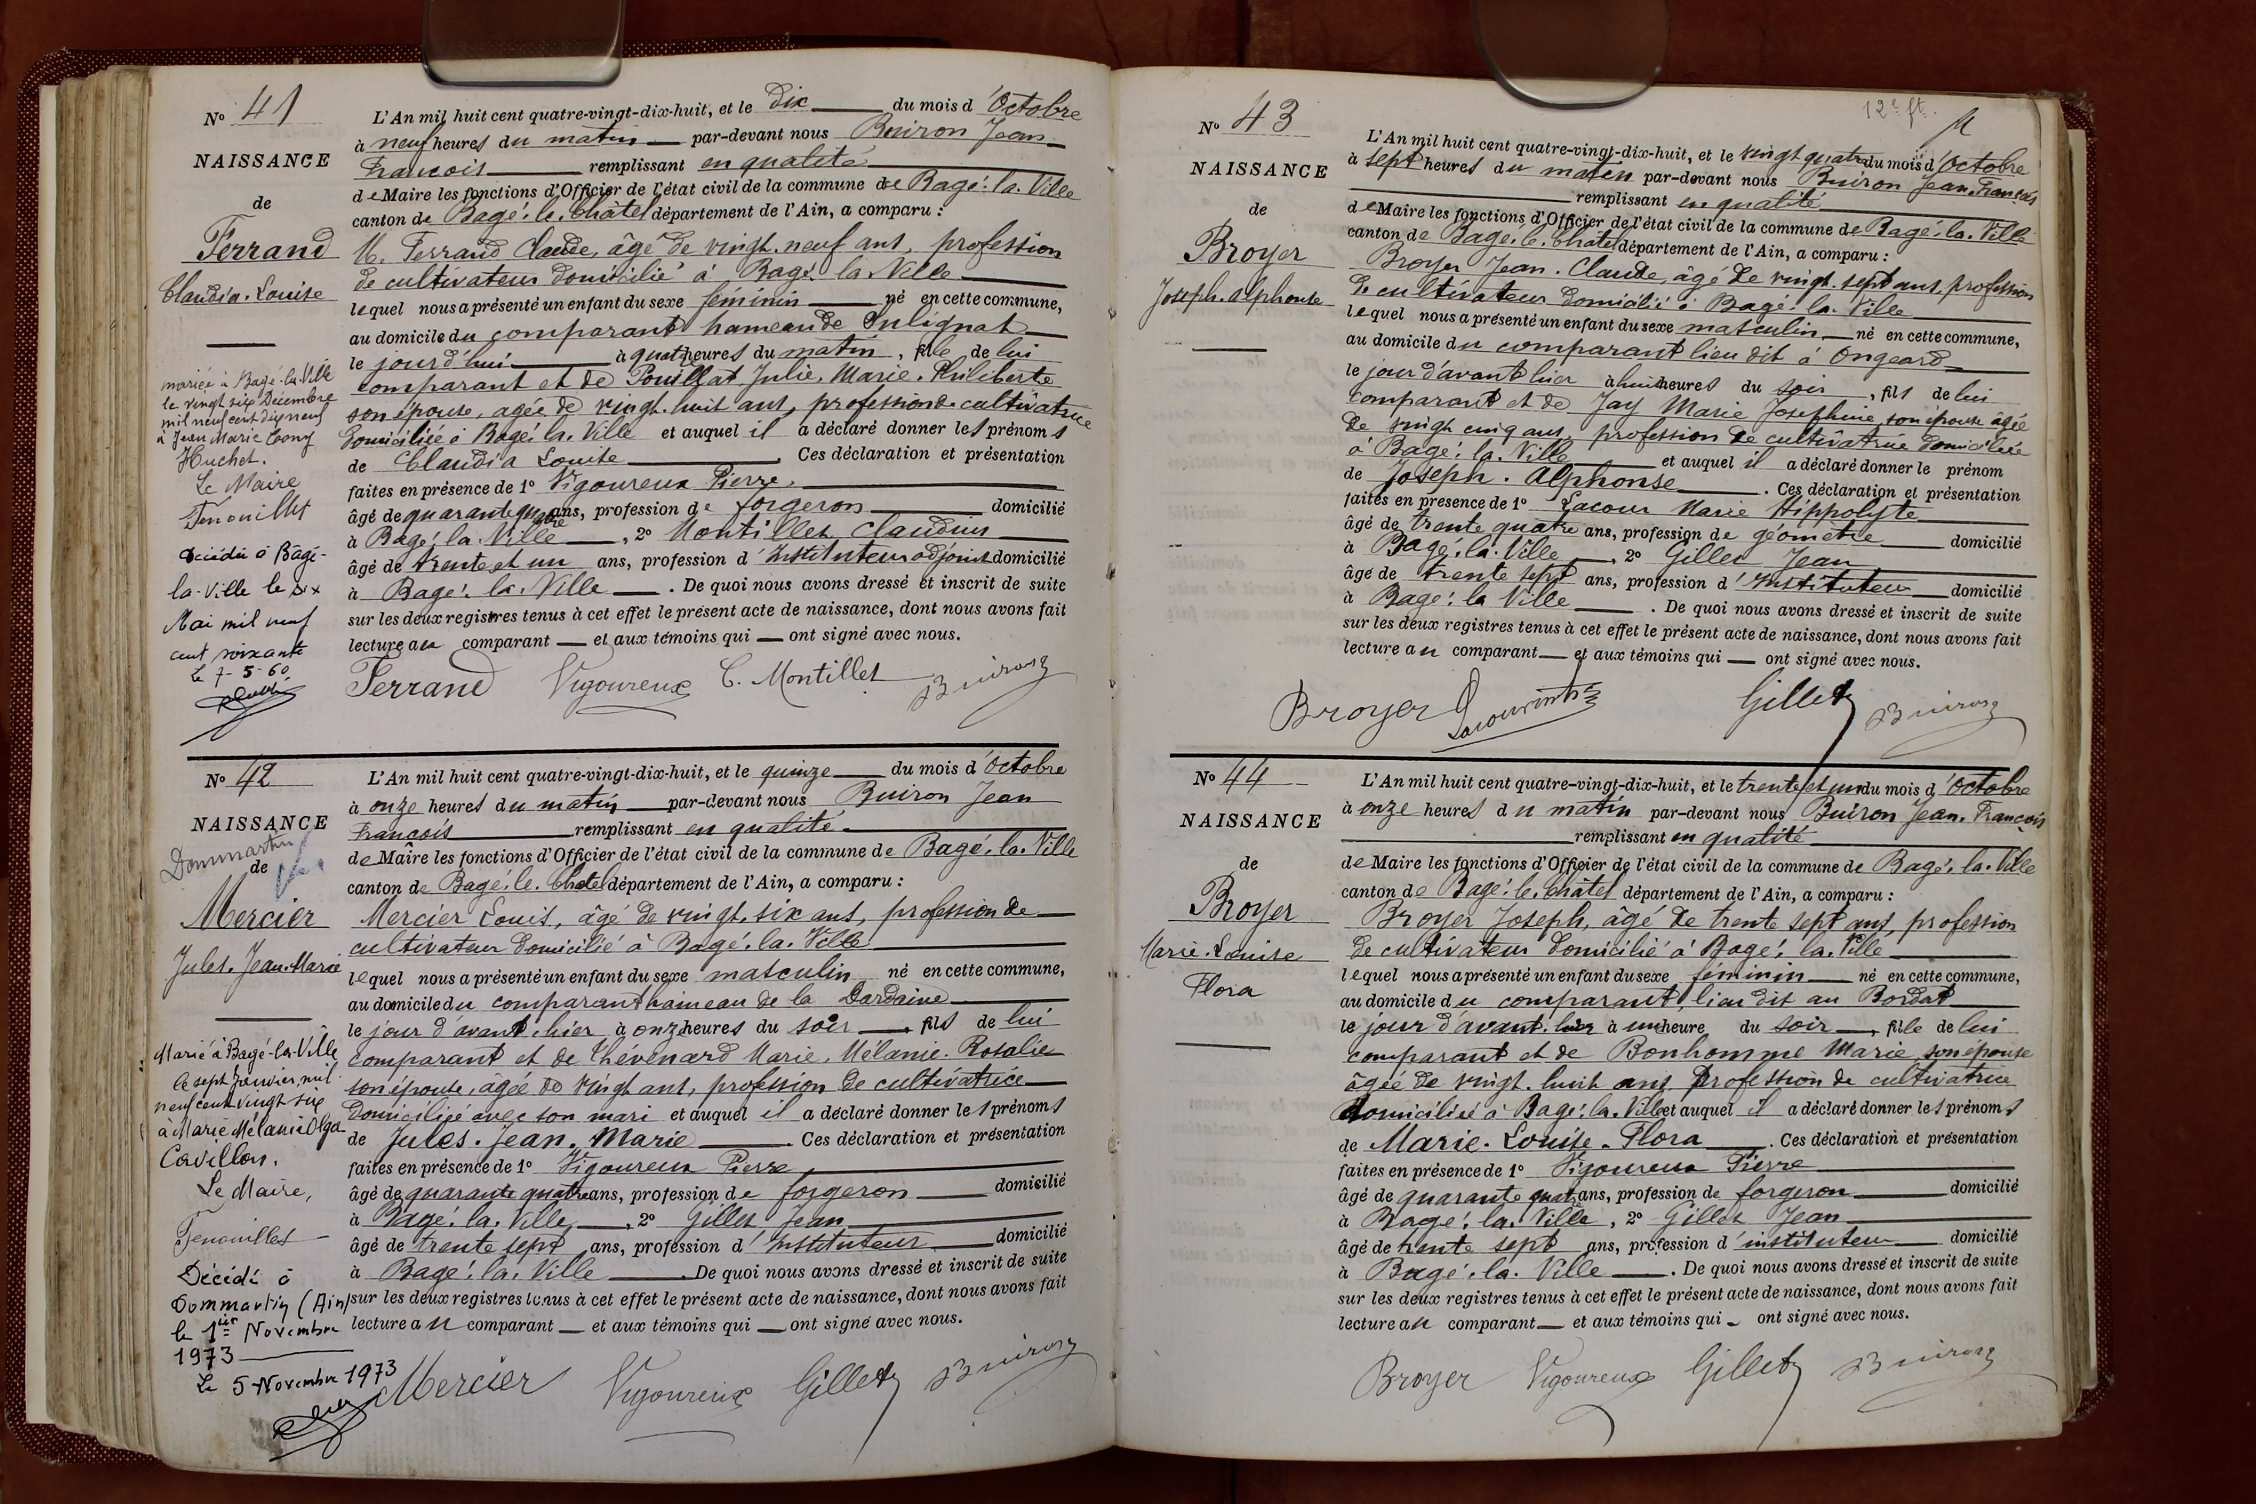 N° 41
NAISSANCE
de
Ferrand
Claudia. Louise
mariée à Bagé-la-Ville
le vingt six Décembre
mil neuf cent dix neuf
à Jean Marie Tony
Huchet.
Le Maire
Fenouillet
Décédée à Bâgé-
la-Ville le six
Mai mil neuf
cent soixante
Le 7-5-60
L'An mil huit cent quatre-vingt-dix-huit, et le dix du mois d'Octobre
à neuf heures du matin par-devant nous Buiron Jean
François remplissant en qualité
de Maire les fonctions d'Officier de l'état civil de la commune de Bagé. la. Ville
canton de Bagé. le. Châtel département de l'Ain, a comparu :
M. Ferrand Claude, âgé de vingt. neuf ans, profession
de cultivateur domicilié à Bagé la Ville
lequel nous a présenté un enfant du sexe féminin né en cette commune,
au domicile du comparant hameau de
le jourd'hui à quatre heures du matin, fille de lui
comparant et de Pouillat Julie. Marie. Philiberte
son épouse, agée de vingt. huit ans, profession de cultivatrice
domiciliée à Bagé. la. Ville et auquel il a déclaré donner les prénoms
de Claudia Louise. Ces déclaration et présentation
faites en présence de 1° Vigoureux Pierre
âgé de quarante quatre ans, profession de forgeron domicilié
à Bagé. la. Ville, 2° Montillet Claudius
âgé de trente et un ans, profession d'Instituteur adjoint domicilié
à Bagé. la. Ville. De quoi nous avons dressé et inscrit de suite
sur les deux registres tenus à cet effet le présent acte de naissance, dont nous avons fait
lecture au comparant et aux témoins qui ont signé avec nous.
Ferrand Vigoureux C. Montillet Buiron
N° 42
NAISSANCE
Dommartin
de
Mercier
Jules. Jean. Marie
Marié à Bagé-la-Ville
le sept Janvier mil
neuf cent vingt six
à Marie Mélanie Olga
Cavillon.
Le Maire,
Fenouillet
Décédé à
Dommartin (Ain)
le 1er Novembre
1973
Le 5 Novembre 1973
L'An mil huit cent quatre-vingt-dix-huit, et le quinze du mois d'Octobre
à onze heures du matin par-devant nous Buiron Jean
François remplissant en qualité
de Maire les fonctions d'Officier de l'état civil de la commune de Bagé. la. Ville
canton de Bagé. le. Châtel département de l'Ain, a comparu :
Mercier Louis, âgé de vingt. six ans, profession de
cultivateur domicilié à Bagé. la. Ville
lequel nous a présenté un enfant du sexe masculin né en cette commune,
au domicile du comparant hameau de la Dardaine
le jour d'avant. hier à onze heures du soir, fils de lui
comparant et de Thévenard Marie. Mélanie. Rosalie
son épouse, âgée de vingt ans, profession de cultivatrice
domiciliée avec son mari et auquel il a déclaré donner les prénoms
de Jules. Jean. Marie. Ces déclaration et présentation
faites en présence de 1° Vigoureux Pierre
âgé de quarante quatre ans, profession de forgeron domicilié
à Bagé. la. Ville, 2° Gillet Jean
âgé de trente sept ans, profession d'Instituteur domicilié
à Bagé. la. Ville. De quoi nous avons dressé et inscrit de suite
sur les deux registres tenus à cet effet le présent acte de naissance, dont nous avons fait
lecture au comparant et aux témoins qui ont signé avec nous.
Mercier Vigoureux Gillet Buiron
12e ft.
N° 43
NAISSANCE
de
Broyer
Joseph. Alphonse
L'An mil huit cent quatre-vingt-dix-huit, et le vingt quatre du mois d'Octobre
à sept heures du matin par-devant nous Buiron Jean. François
remplissant en qualité
de Maire les fonctions d'Officier de l'état civil de la commune de Bagé. la. Ville
canton de Bagé. le. Châtel département de l'Ain, a comparu :
Broyer Jean. Claude, âgé de vingt. sept ans, profession
de cultivateur domicilié à Bagé. la. Ville
lequel nous a présenté un enfant du sexe masculin né en cette commune,
au domicile du comparant lieu dit à Ongeard
le jour d'avant hier à huit heures du soir, fils de lui
comparant et de Jay Marie Josephine, son épouse âgée
de vingt cinq ans, profession de cultivatrice domiciliée
à Bagé. la. Ville et auquel il a déclaré donner le prénom
de Joseph. Alphonse. Ces déclaration et présentation
faites en présence de 1° Lacour Marie Hippolyte
âgé de trente quatre ans, profession de géomètre domicilié
à Bagé. la. Ville, 2° Gillet Jean
âgé de trente sept ans, profession d'Instituteur domicilié
à Bagé. la Ville. De quoi nous avons dressé et inscrit de suite
sur les deux registres tenus à cet effet le présent acte de naissance, dont nous avons fait
lecture au comparant et aux témoins qui ont signé avec nous.
Broyer Gillet Buiron
N° 44
NAISSANCE
de
Broyer
Marie. Louise
Flora
L'An mil huit cent quatre-vingt-dix-huit, et le trente et un du mois d'Octobre
à onze heures du matin par-devant nous Buiron Jean. François
remplissant en qualité
de Maire les fonctions d'Officier de l'état civil de la commune de Bagé. la. Ville
canton de Bagé. le. Châtel département de l'Ain, a comparu :
Broyer Joseph, âgé de trente sept ans, profession
de cultivateur domicilié à Bagé. la. Ville
lequel nous a présenté un enfant du sexe féminin né en cette commune,
au domicile du comparant, lieu dit au Bordat
le jour d'avant. hier à une heure du soir, fille de lui
comparant et de Bonhomme Marie, son épouse
âgée de vingt. huit ans, profession de cultivatrice
domiciliée à Bagé. la. Ville et auquel il a déclaré donner les prénoms
de Marie. Louise. Flora. Ces déclaration et présentation
faites en présence de 1° Vigoureux Pierre
âgé de quarante quatre ans, profession de forgeron domicilié
à Bagé. la. Ville, 2° Gillet Jean
âgé de trente sept ans, profession d'instituteur domicilié
à Bagé. la. Ville. De quoi nous avons dressé et inscrit de suite
sur les deux registres tenus à cet effet le présent acte de naissance, dont nous avons fait
lecture au comparant et aux témoins qui ont signé avec nous.
Broyer Vigoureux Gillet Buiron